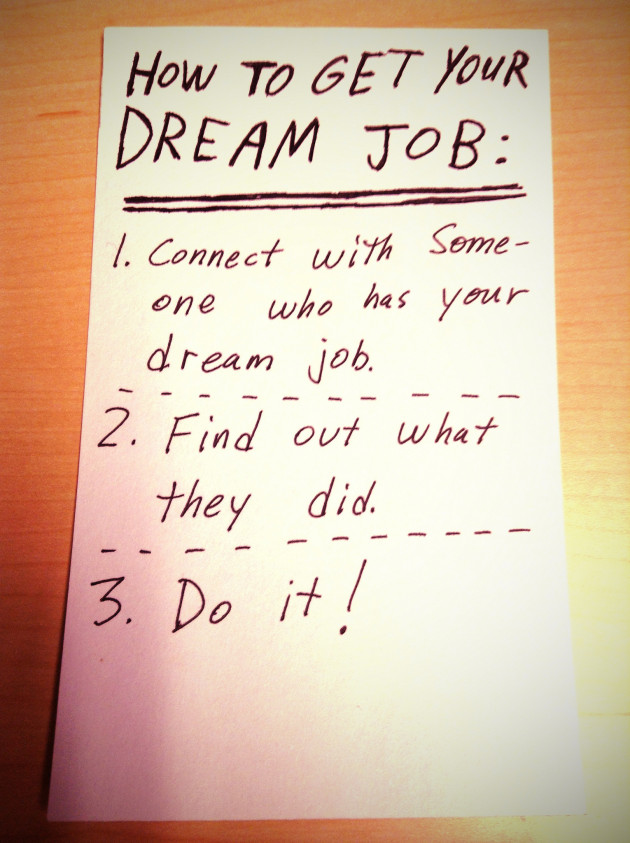 HOW TO GET YOUR
DREAM JOB:
1. Connect with Some-
one who has your
dream job.
2. Find out what
they did.
3. Do it!